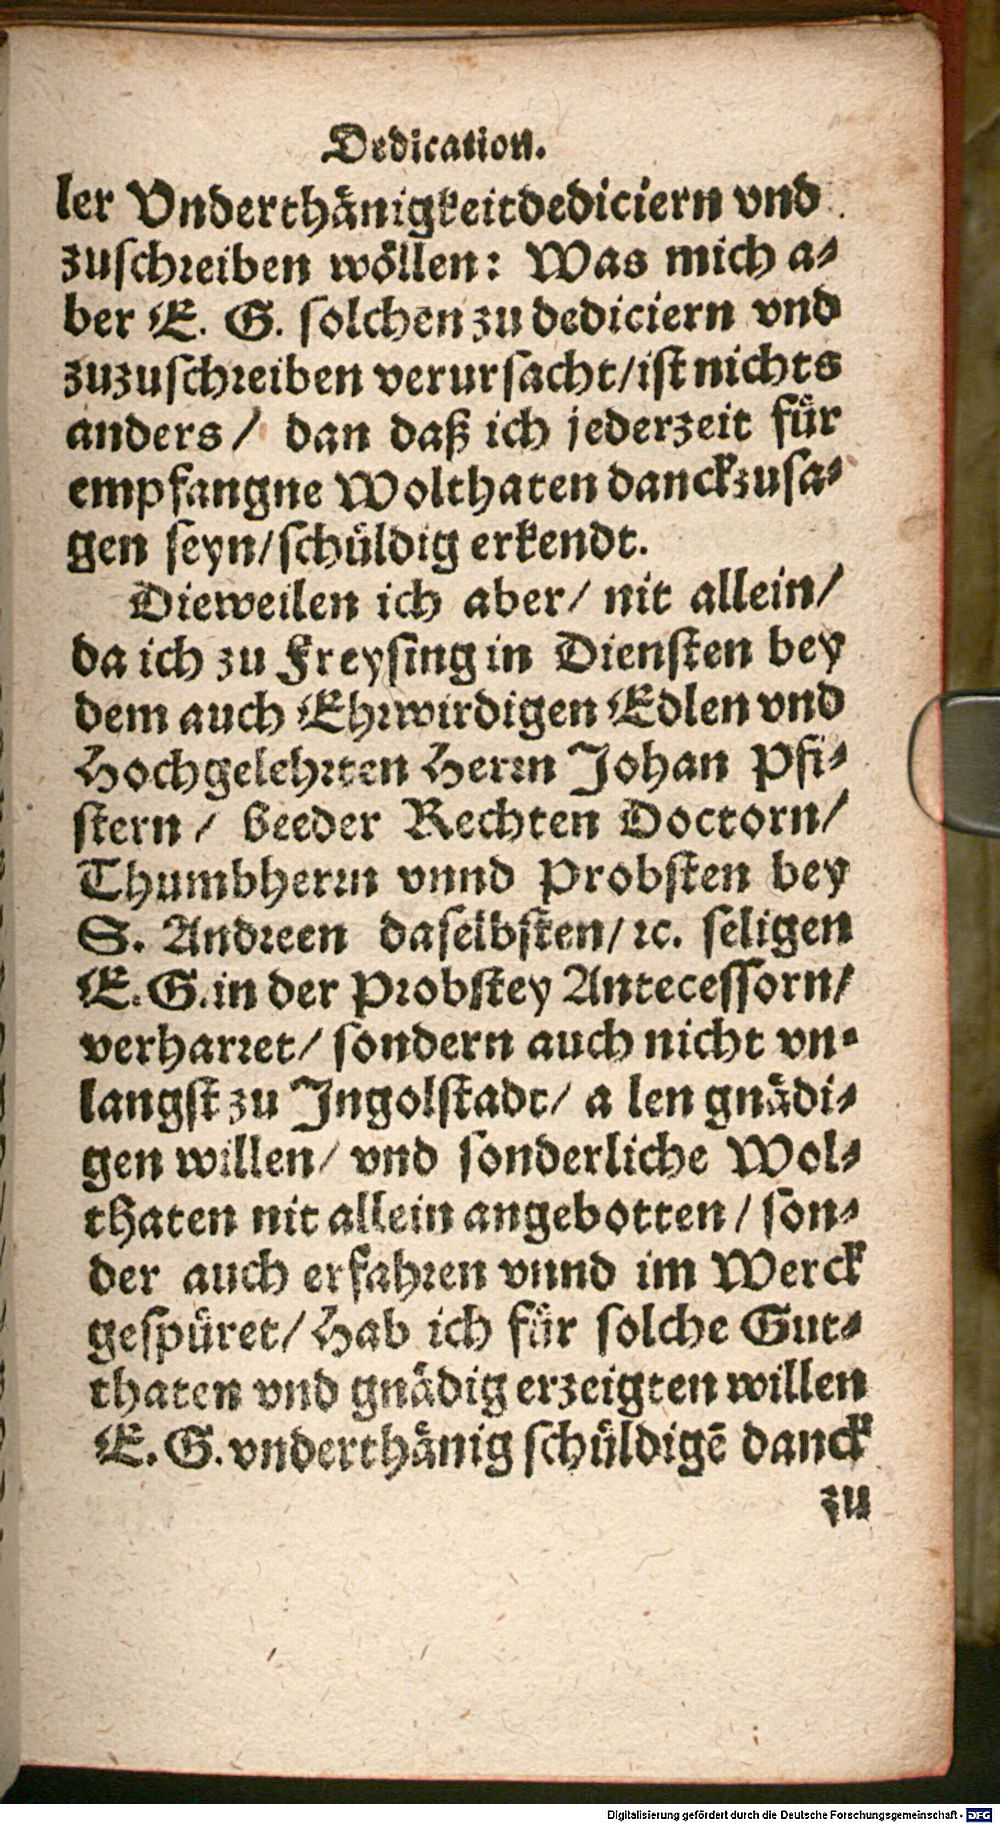 Dedication.
ler Vnderthänigkeit dediciern vnd
zuschreiben wöllen: Was mich a-
ber E. G. solchen zu dediciern vnd
zuzuschreiben verursacht/ ist nichts
anders/ dan daß ich jederzeit für
empfangne Wolthaten danckzusa-
gen seyn/ schüldig erkendt.
Dieweilen ich aber/ nit allein/
da ich zu Freysing in Diensten bey
dem auch Ehrwirdigen Edlen vnd
Hochgelehrten Herrn Johan Pfi-
stern/ beeder Rechten Doctorn/
Thumbherrn vnnd Probsten bey
S. Andreen daselbsten/ ꝛc. seligen
E. G. in der Probstey Antecessorn/
verharret/ sondern auch nicht vn-
langst zu Ingolstadt/ a len gnädi-
gen willen/ vnd sonderliche Wol-
thaten nit allein angebotten/ son-
der auch erfahren vnnd im Werck
gespüret/ Hab ich für solche Gut-
thaten vnd gnädig erzeigten willen
E. G. vnderthänig schüldigẽ danck
zu
Digitalisierung gefördert durch die Deutsche Forschungsgemeinschaft - DFG